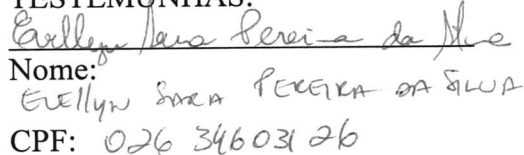 TESTEMUNHAS:
Evellyn Sara Pereira da Silva
Nome:
EVEllyN SARA PEREIRA DA SILVA
CPF: 026 346031 26